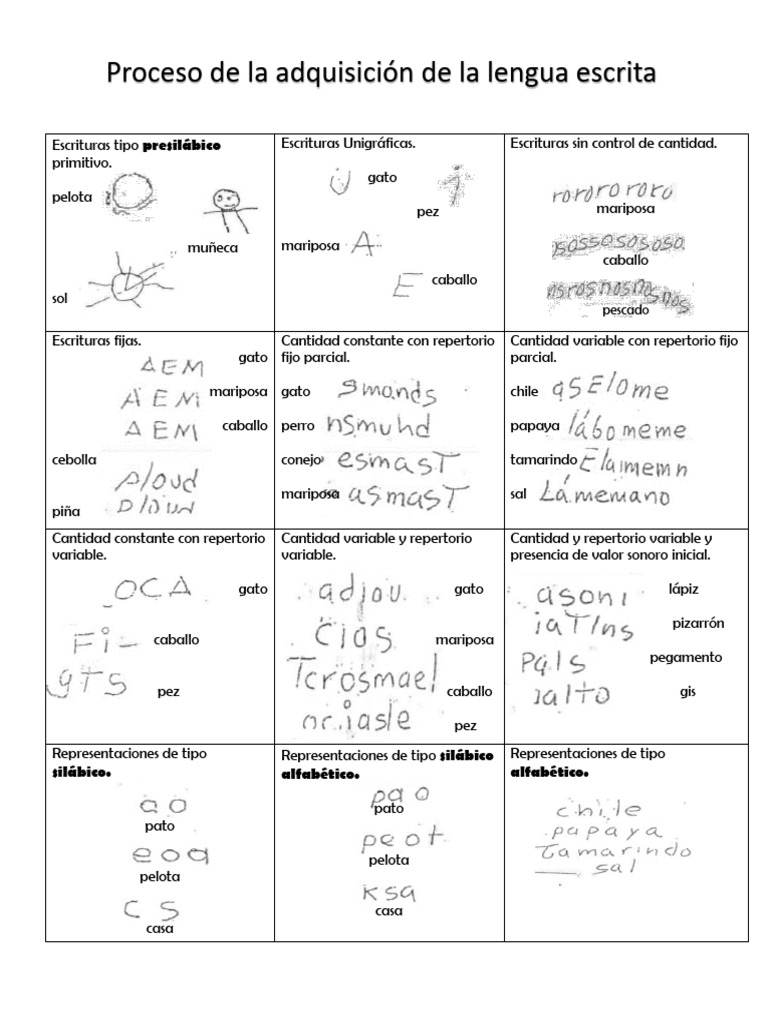 Proceso de la adquisición de la lengua escrita
Escrituras tipo presilábico
primitivo.
pelota
muñeca
sol
Escrituras Unigráficas.
gato
pez
mariposa A
E caballo
Escrituras sin control de cantidad.
rorororoto
mariposa
sossosososo
caballo
nsrosnosnosnos
pescado
Escrituras fijas.
AEM gato
AEM mariposa
AEM caballo
cebolla
ploud
ploud
piña
Cantidad constante con repertorio
fijo parcial.
gato smands
perro nsmuhd
conejo esmasT
mariposa asmasT
Cantidad variable con repertorio fijo
parcial.
chile asElome
papaya lábomeme
tamarindo Elaimemn
sal Lámemano
Cantidad constante con repertorio
variable.
OCA gato
Fi- caballo
gTS pez
Cantidad variable y repertorio
variable.
adjou gato
cios mariposa
Tcrosmael
caballo
oriasle
pez
Cantidad y repertorio variable y
presencia de valor sonoro inicial.
asoni lápiz
iaTins pizarrón
Pals pegamento
ialto gis
Representaciones de tipo
silábico.
ao
pato
eoa
pelota
c s
casa
Representaciones de tipo silábico
alfabético.
pao
pato
peot
pelota
ksa
casa
Representaciones de tipo
alfabético.
chile
papaya
Tamarindo
sal